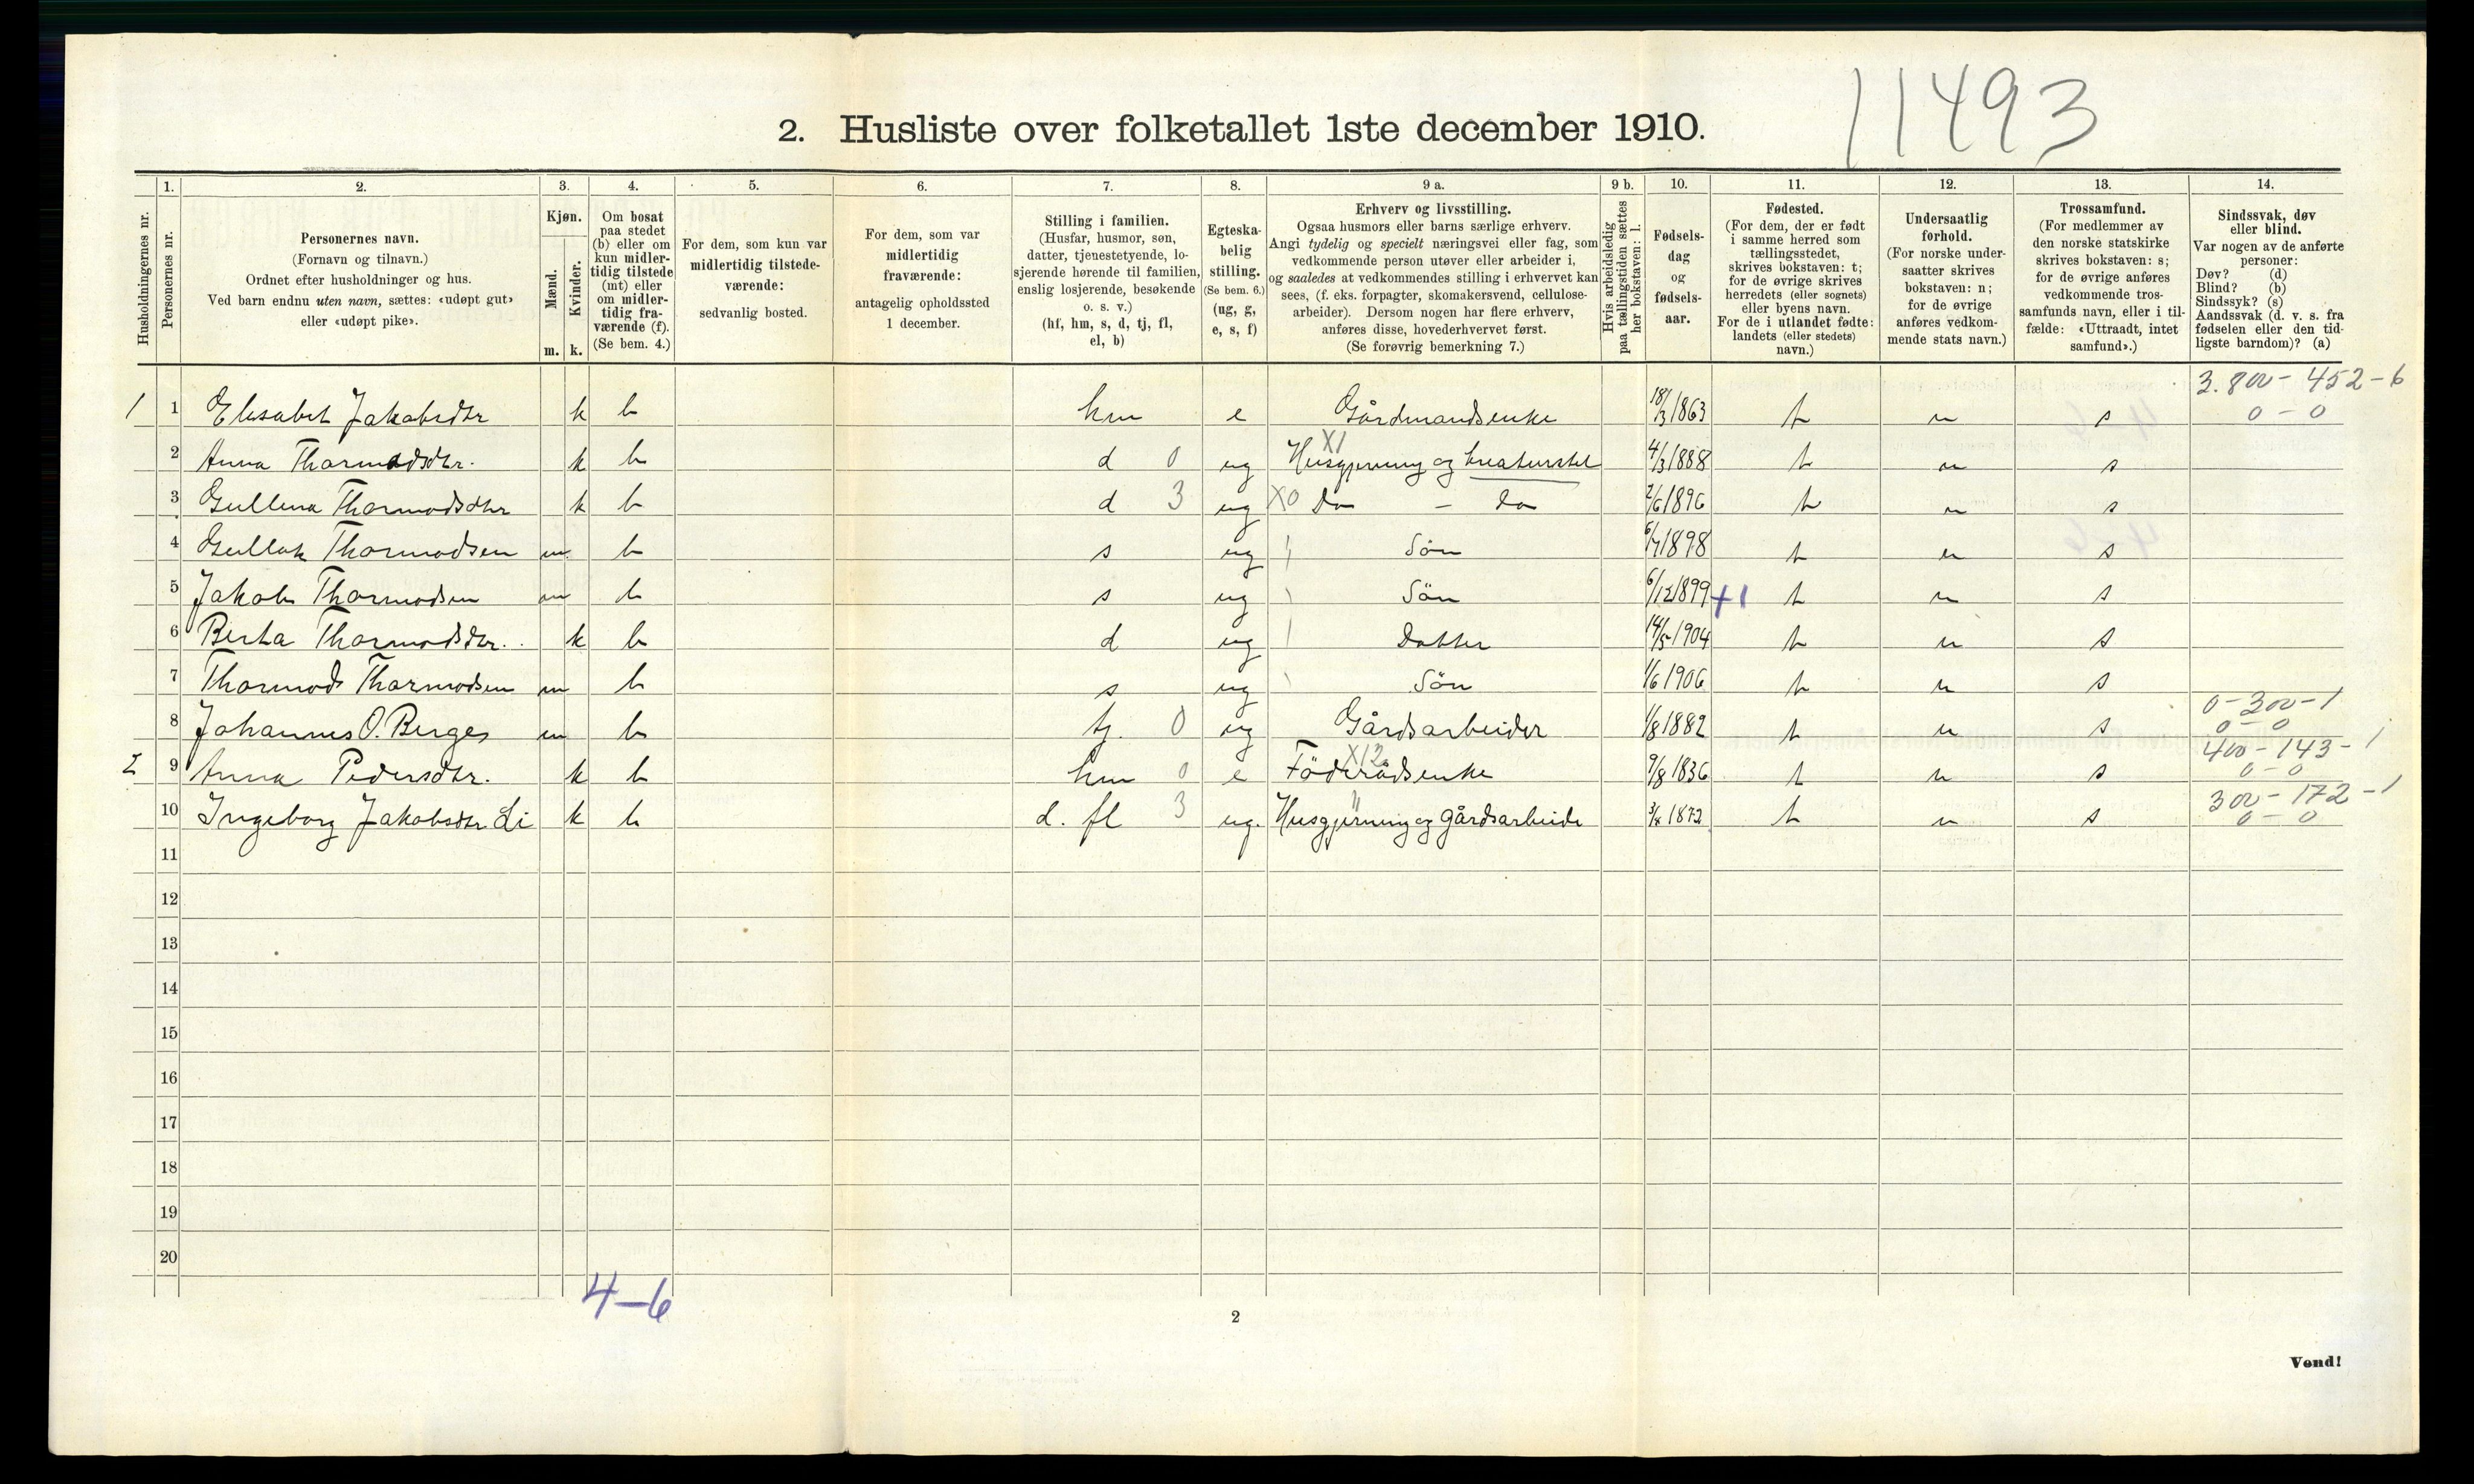 11493
2. Husliste over folketallet 1ste december 1910.
Husholdningernes nr.
1.
Personernes nr.
2.
Personernes navn.
(Fornavn og tilnavn.)
Ordnet efter husholdninger og hus.
Ved barn endnu uten navn, sættes: «udøpt gut»
eller «udøpt pike».
3.
Kjøn.
Mænd.
Kvinder.
m. k.
4.
Om bosat
paa stedet
(b) eller om
kun midler-
tidig tilstede
(mt) eller
om midler-
tidig fra-
værende (f).
(Se bem. 4.)
5.
For dem, som kun var
midlertidig tilstede-
værende:
sedvanlig bosted.
6.
For dem, som var
midlertidig
fraværende:
antagelig opholdssted
1 december.
7.
Stilling i familien.
(Husfar, husmor, søn,
datter, tjenestetyende, lo-
sjerende hørende til familien,
enslig losjerende, besøkende
o. s. v.)
(hf, hm, s, d, tj, fl,
el, b)
8.
Egteska-
belig
stilling.
(Se bem. 6.)
(ug, g,
e, s, f)
9 a.
Erhverv og livsstilling.
Ogsaa husmors eller barns særlige erhverv.
Angi tydelig og specielt næringsvei eller fag, som
vedkommende person utøver eller arbeider i,
og saaledes at vedkommendes stilling i erhvervet kan
sees, (f. eks. forpagter, skomakersvend, cellulose-
arbeider). Dersom nogen har flere erhverv,
anføres disse, hovederhvervet først.
(Se forøvrig bemerkning 7.)
9 b.
Hvis arbeidsledig
paa tællingstiden sættes
her bokstaven: l.
10.
Fødsels-
dag
og
fødsels-
aar.
11.
Fødested.
(For dem, der er født
i samme herred som
tællingsstedet,
skrives bokstaven: t;
for de øvrige skrives
herredets (eller sognets)
eller byens navn.
For de i utlandet fødte:
landets (eller stedets)
navn.)
12.
Undersaatlig
forhold.
(For norske under-
saatter skrives
bokstaven: n;
for de øvrige
anføres vedkom-
mende stats navn.)
13.
Trossamfund.
(For medlemmer av
den norske statskirke
skrives bokstaven: s;
for de øvrige anføres
vedkommende tros-
samfunds navn, eller i til-
fælde: «Uttraadt, intet
samfund».)
14.
Sindssvak, døv
eller blind.
Var nogen av de anførte
personer:
Døv? (d)
Blind? (b)
Sindssyk? (s)
Aandssvak (d. v. s. fra
fødselen eller den tid-
ligste barndom)? (a)
3.800 - 452 - 6
1 1 Elisabet Jakobsdtr k b hm e Gårdmandsenke 18/3 1863 t n s 0 - 0
X1
2 Anna Thormodsdtr. k b d 0 ug Husgjerning og kreaturstel 4/3 1888 t n s
3 Gullena Thormodsdtr k b d 3 ug X0 Do - Do 2/6 1896 t n s
4 Gullak Thormodsen m b s ug Sön 6/7 1898 t n s
5 Jakob Thormodsen m b s ug Sön 6/12 1899 +1 t n s
6 Berta Thormodsdtr. k b d ug Datter 14/5 1904 t n s
7 Thormod Thormodsen m b s ug Sön 1/6 1906 t n s
0 - 300 - 1
8 Johannes O. Berge m b tj. 0 ug Gårdsarbeider 1/8 1882 t n s 0 - 0
X12 400 - 143 - 1
2 9 Anna Pedersdtr. k b hm 0 e Föderådsenke 9/8 1836 t n s 0 - 0
300 - 172 - 1
10 Ingeborg Jakobsdtr Li k b d. fl 3 ug. Husgjerning og gårdsarbeide 3/8 1872 t n s 0 - 0
11
12
13
14
15
16
17
18
19
20
4-6
2
Vend!